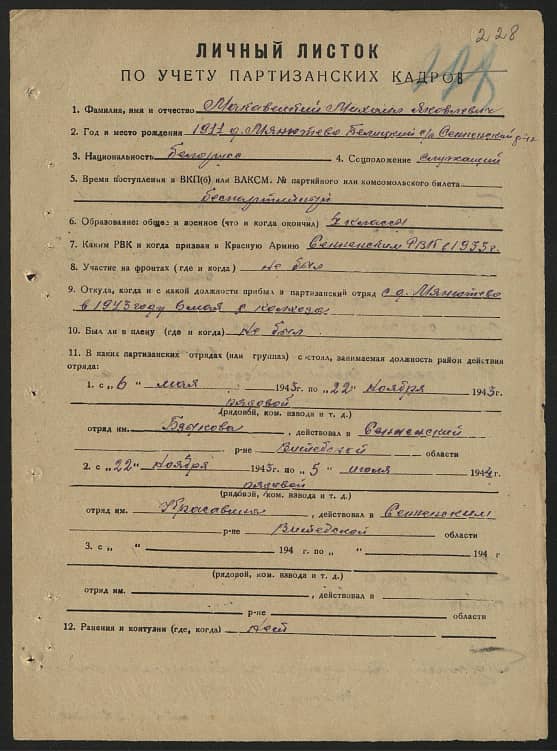 228
ЛИЧНЫЙ ЛИСТОК
ПО УЧЕТУ ПАРТИЗАНСКИХ КАДРОВ
1. Фамилия, имя и отчество Михаил Яковлевич
2. Год и место рождения 1917 д. Мянютево Белицкий с/с Сенненский р-н
3. Национальность Белорус 4. Соцположение служащий
5. Время поступления в ВКП(б) или ВЛКСМ. № партийного или комсомольского билета
Беспартийный
6. Образование: общее и военное (что и когда окончил) 7 классов
7. Каким РВК и когда призван в Красную Армию Сенненским РВК 1935 г.
8. Участие на фронтах (где и когда) Не был
9. Откуда, когда и с какой должности прибыл в партизанский отряд с д. Мянютево
в 1943 году 6 мая с колхоза
10. Был ли в плену (где и когда) Не был
11. В каких партизанских отрядах (или группах) состоял, занимаемая должность район действия
отряда:
1. с „6" мая 1943 г. по „22" Ноября 1943 г.
рядовой
(рядовой, ком. взвода и т. д.)
отряд им. , действовал в Сенненский
р-не Витебской области
2. с „22" Ноября 1943 г. по „5" июля 1944 г.
рядовой
(рядовой, ком. взвода и т. д.)
отряд им. , действовал в Сенненским
р-не Витебской области
3. с „ " 194 г. по „ " 194 г
(рядовой, ком. взвода и т. д.)
отряд им. , действовал в
р-не области
12. Ранения и контузии (где, когда) Нет